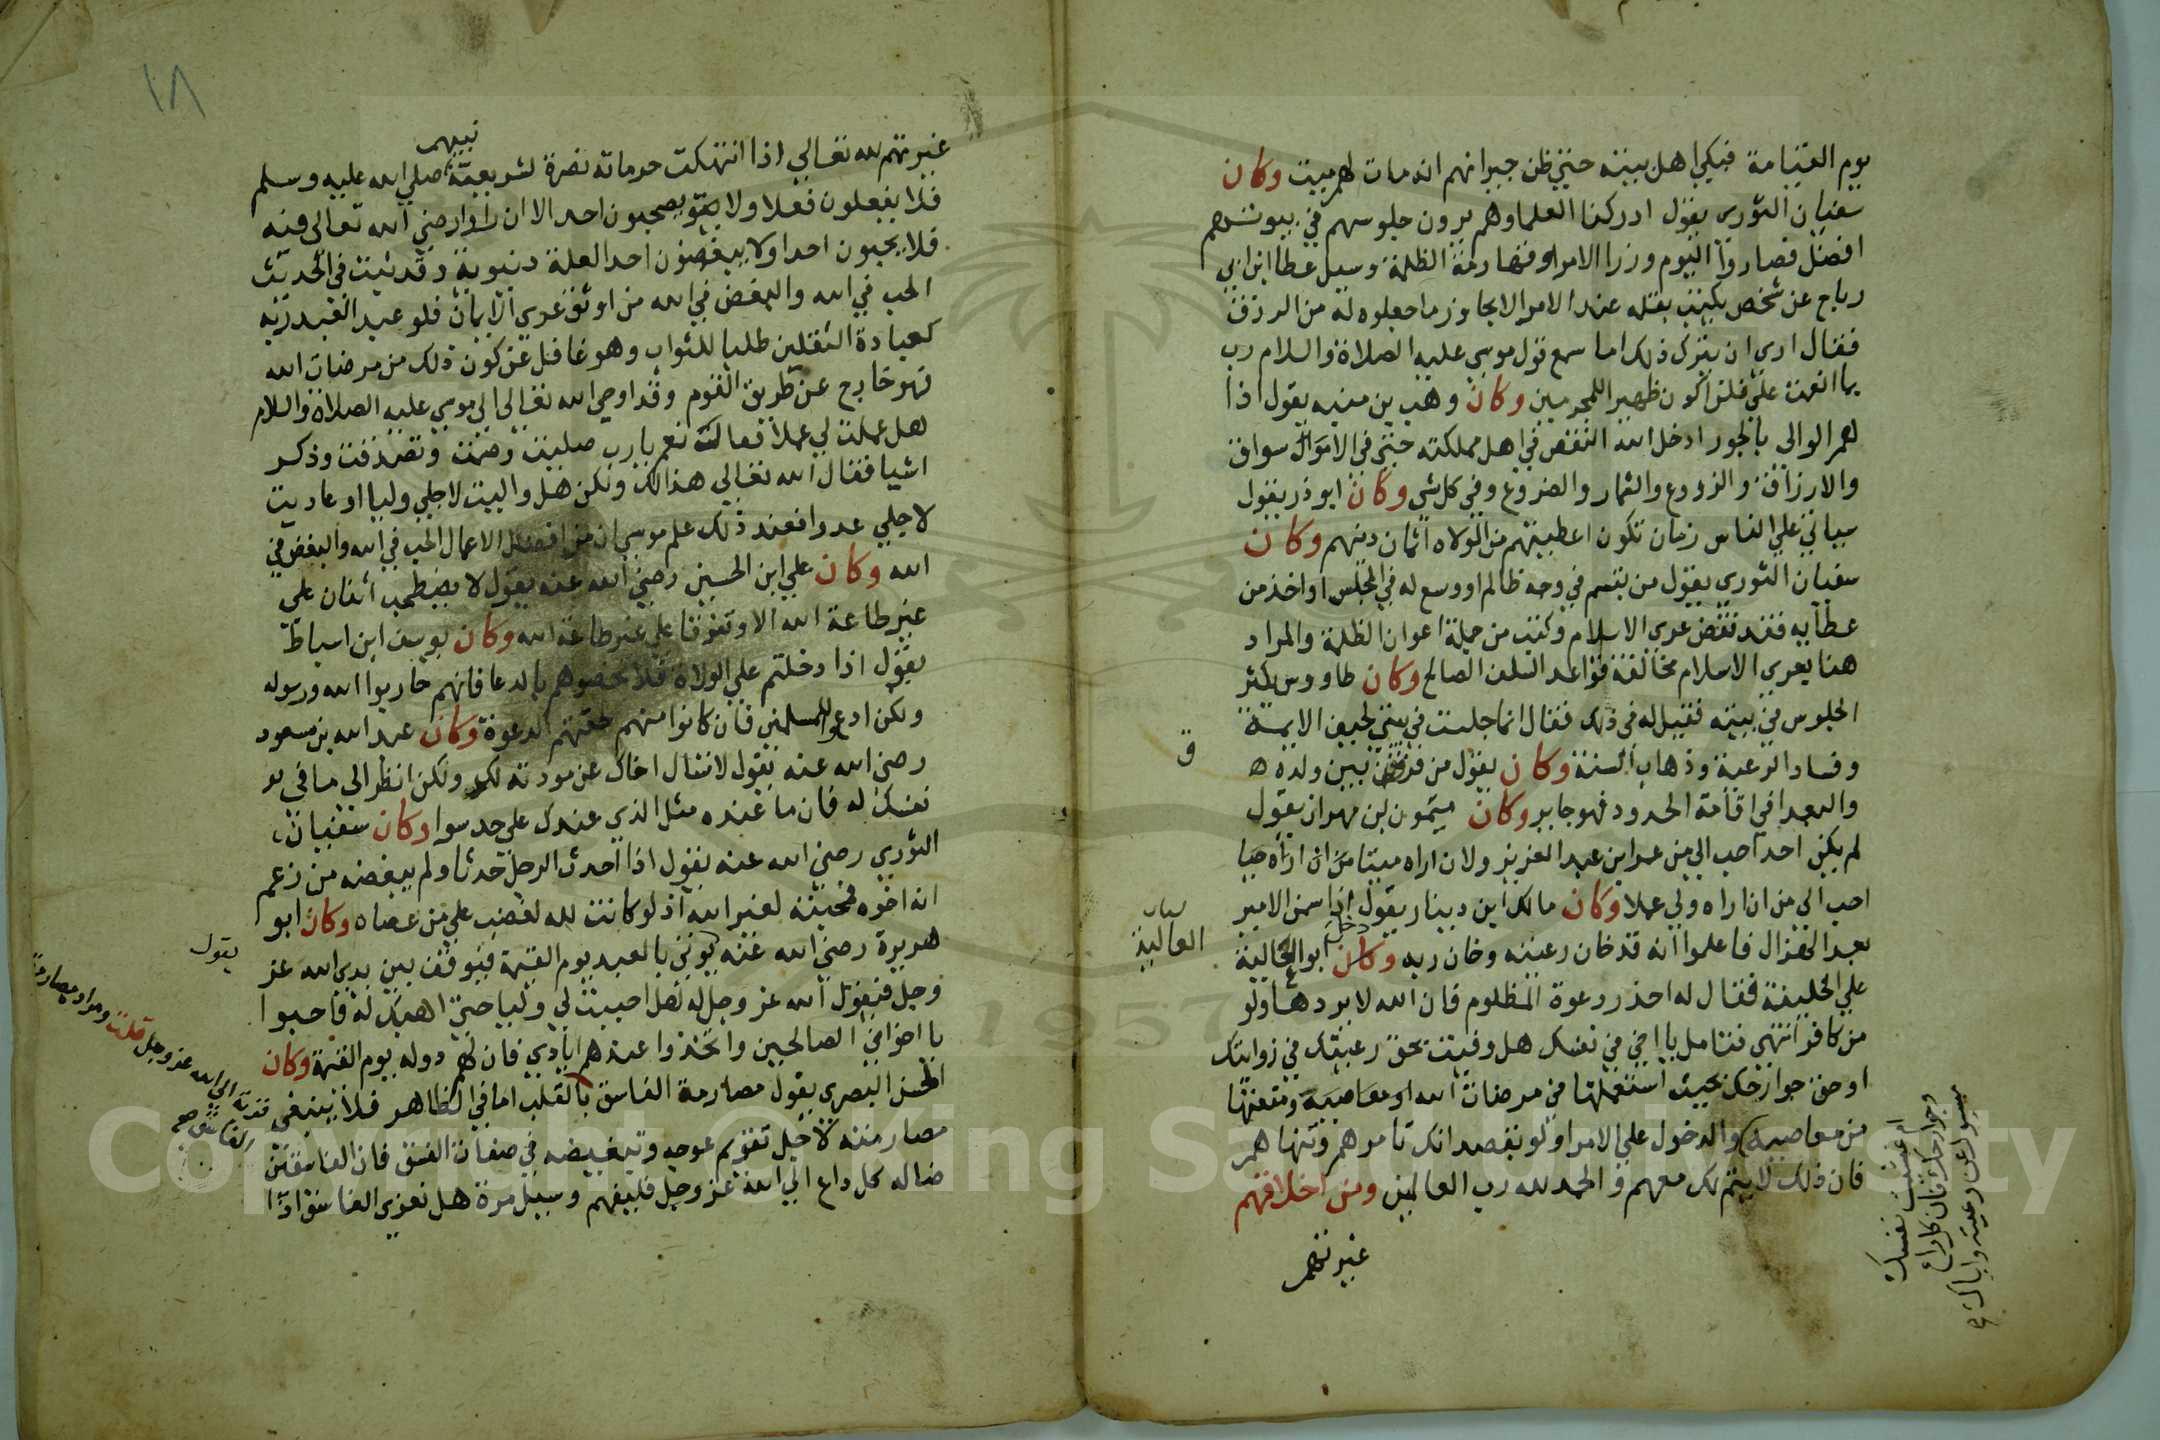 يوم القيامة فيبكي اهل بيته حتي ظن جيرانهم انه مات لهم ميت وكان
سفيان الثوري يقول ادركنا العلما وهم يرون جلوسهم في بيوتهم
افضل فصاروا اليوم وزرا الامرا وقهارمة الظلمة وسيل عطا ابن ابي
رباح عن شخص يكتب بقلمه عند الامرا لا يجاوز ما جعلوه له من الرزق
فقال اري ان يترك ذلك اما سمع قول موسي عليه الصلاة والسلام رب
بما انعمت علي فلن اكون ظهيرا للمجرمين وكان وهب بن منبه يقول اذا
هم الوالى بالجور ادخل الله النقص في اهل مملكته حتي في الاسواق
والارزاق والزروع والثمار والضروع وفي كل شي وكان ابو ذر يقول
سياتي علي الناس زمان تكون اعطيتهم من الولاه اثمان دينهم وكان
سفيان الثوري يقول من تبسم في وجه ظالم او وسع له في المجلس او اخذ من
عطايه فقد نقض عري الاسلام وكتب من جملة اعوان الظلمة والمراد
هنا بعري الاسلام مخالفة قواعد السلف الصالح وكان طاووس يكثر
الجلوس في بيته فقيل له في ذلك فقال انما جلست في بيتي لحيف الايمة
وفساد الرعية وذهاب السنة وكان يقول من فرق بين ولده
والعبد في اقامة الحدود فهو جاير وكان ميمون بن مهران يقول
لم يكن احد احب الي من عمر ابن عبد العزيز ولان اراه ميتا من ان اراه حيا
احب الي من ان اراه ولي عملا وكان مالك ابن دينار يقول اذا سمن الامير
بعد الهزال فاعلموا انه قد خان رعيته وخان ربه وكان دخل ابو العالية
علي الخليفة فقال له احذر دعوة المظلوم فان الله لا يردها ولو
من كافر انتهي فتامل يا اخي في نفسك هل وفيت بحق رعيتك في زوايتك
او حق جوارحك بحيث استعملتها في مرضات الله او معاصيه ومنعتها
من معاصيه والدخول علي الامرا ولو بقصد انك تامرهم وتنهاهم
فان ذلك لا يتم لك معهم والحمد لله رب العالمين ومن اخلاقهم
غيرتهم
ق
العالية
ام غششت نفسك
وجوارحك فان كل راع
مسيول عن رعيته واياك
١٨
غيرتهم لله تعالي اذا انتهكت حرماته نصرة لشريعة نبيهم صلي الله عليه وسلم
فلا يفعلون فعلا ولا يصحبون احد الا ان راوا رضي الله تعالى فيه
فلا يحبون احدا ولا يبغضون احد العلة دنيوية وقد ثبت في الحديث
الحب في الله والبغض في الله من اوثق عري الايمان فلو عبد العبد ربه
كعبادة الثقلين طلبا للثواب وهو غافل عن كون ذلك من مرضات الله
فهو خارج عن طريق القوم وقد اوحي الله تعالي الي موسي عليه الصلاة والسلام
هل عملت لي عملا قط قال نعم يا رب صليت وصمت وتصدقت وذكر
اشيا فقال الله تعالي هذا لك ولكن هل واليت لاجلي وليا او عاديت
لاجلي عدوا فعند ذلك علم موسي ان من افضل الاعمال الحب في الله والبغض في
الله وكان علي ابن الحسين رضي الله عنه يقول لا يصطحب اثنان علي
غير طاعة الله الا وتفرقا علي غير طاعة الله وكان يوسف ابن اسباط
يقول اذا دخلتم علي الولاة فلا تخصوهم بالدعا فانهم حاربوا الله ورسوله
ولكن ادعوا للمسلمين فان كانوا منهم لحقتهم الدعوة وكان عبد الله بن مسعود
رضي الله عنه يقول لا تسال اخاك عن مودته لك ولكن انظر الي ما في
نفسك له فان ما عنده مثل الذي عندك علي حد سوا وكان سفيان
الثوري رضي الله عنه يقول اذا احدث الرجل حدثا ولم يبغضه من زعم
انه اخوه فمحبته لغير الله اذ لو كانت لله لغضب علي من عصاه وكان ابو
هريرة رضي الله عنه يقول يوتي بالعبد يوم القيمة فيوقف بين يدي الله عز
وجل فيقول الله عز وجل له هل احببت لي وليا حتي اهبك له فاحبوا
يا اخواني الصالحين واتخذوا عندهم ايادي فان لهم دوله يوم القيمة وكان
الحسن البصري يقول مصارمة الفاسق بالقلب اما في الظاهر فلا ينبغي
مصارمته لاجل تقويم عوجه وتبغيضه في صفات الفسق فان الفاسق
ضاله كل داع الي الله عز وجل فليفهم وسيل مرة هل نعزي الفاسق اذا
قربة الي الله عز وجل قلت ومراده بمصارمة
الفاسق صح
Copyright © King Saud University
1957